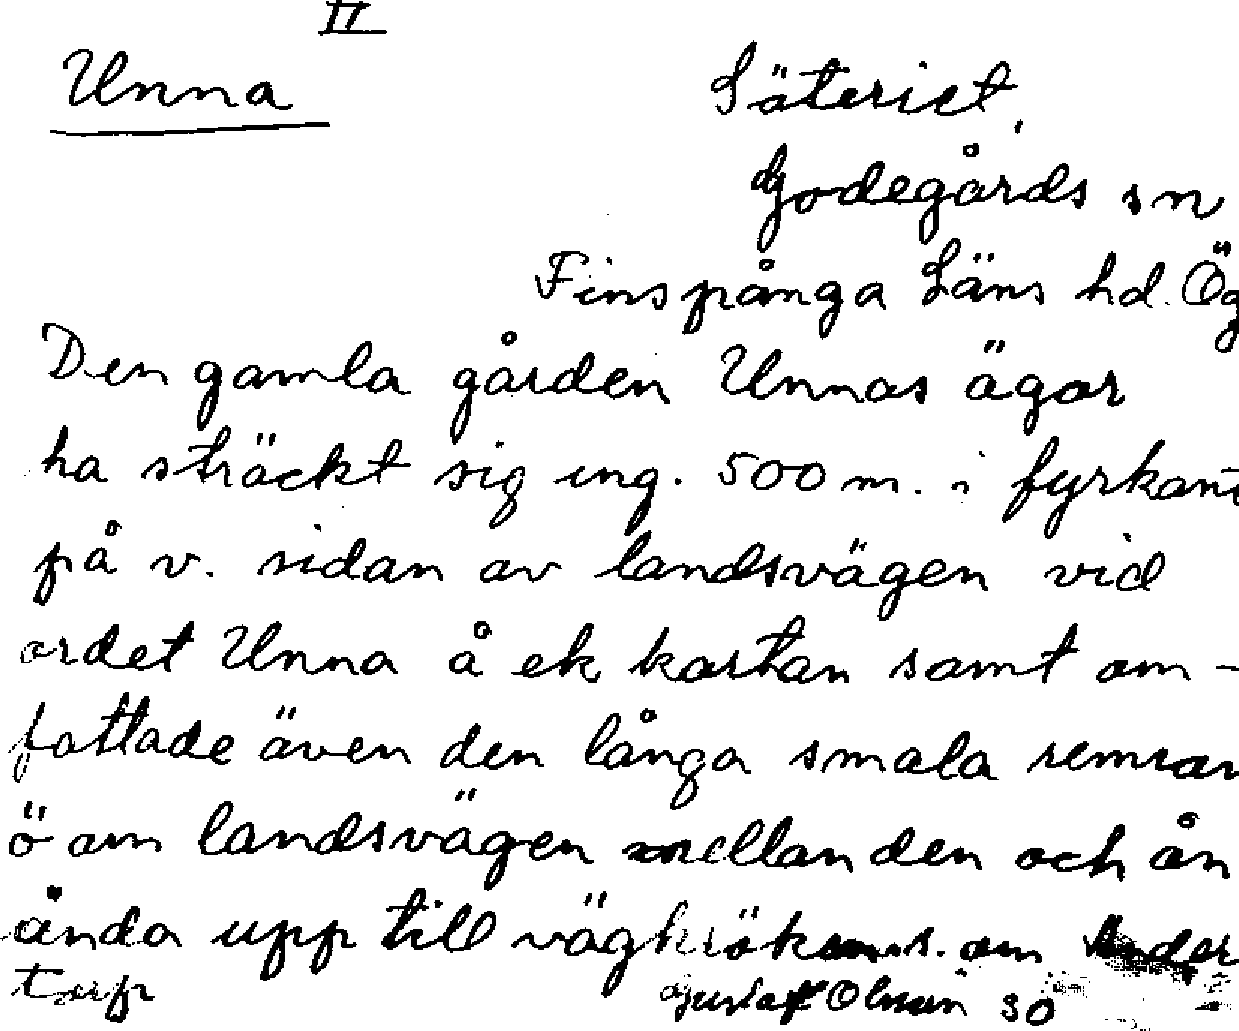 II
Unna
Säteriet,
Godegårds sn
Finspånga Läns hd. Ög
Den gamla gården Unnas ägor
ha sträckt sig ung. 500 m. i fyrkant
på v. sidan av landsvägen vid
ordet Unna å ek kartan samt om-
fattade även den långa smala remsan
ö om landsvägen mellan den och ån
ända upp till vägkröken s. om Under
torp
Gustaf Olsson 30